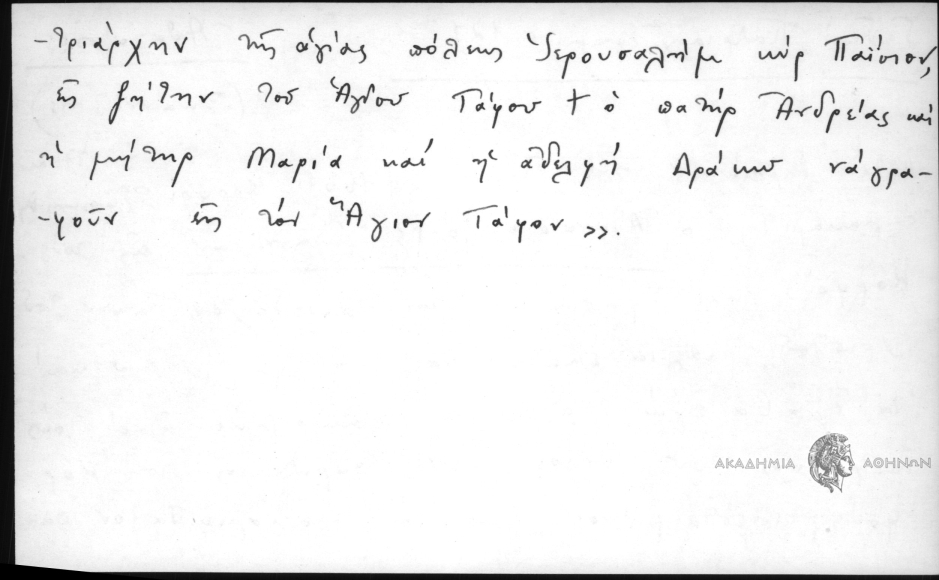 -τριάρχην τῆς ἁγίας πόλεως Ἱερουσαλήμ κύρ Παΐσιον,
εἰς ζήτην τοῦ Ἁγίου Τάφου † ὁ πατήρ Ἀνδρέας καί
ἡ μήτηρ Μαρία καί ἡ ἀδελφή Δράκω νά γρα-
-φοῦν εἰς τόν Ἅγιον Τάφον >>.
ΑΚΑΔΗΜΙΑ ΑΘΗΝΩΝ